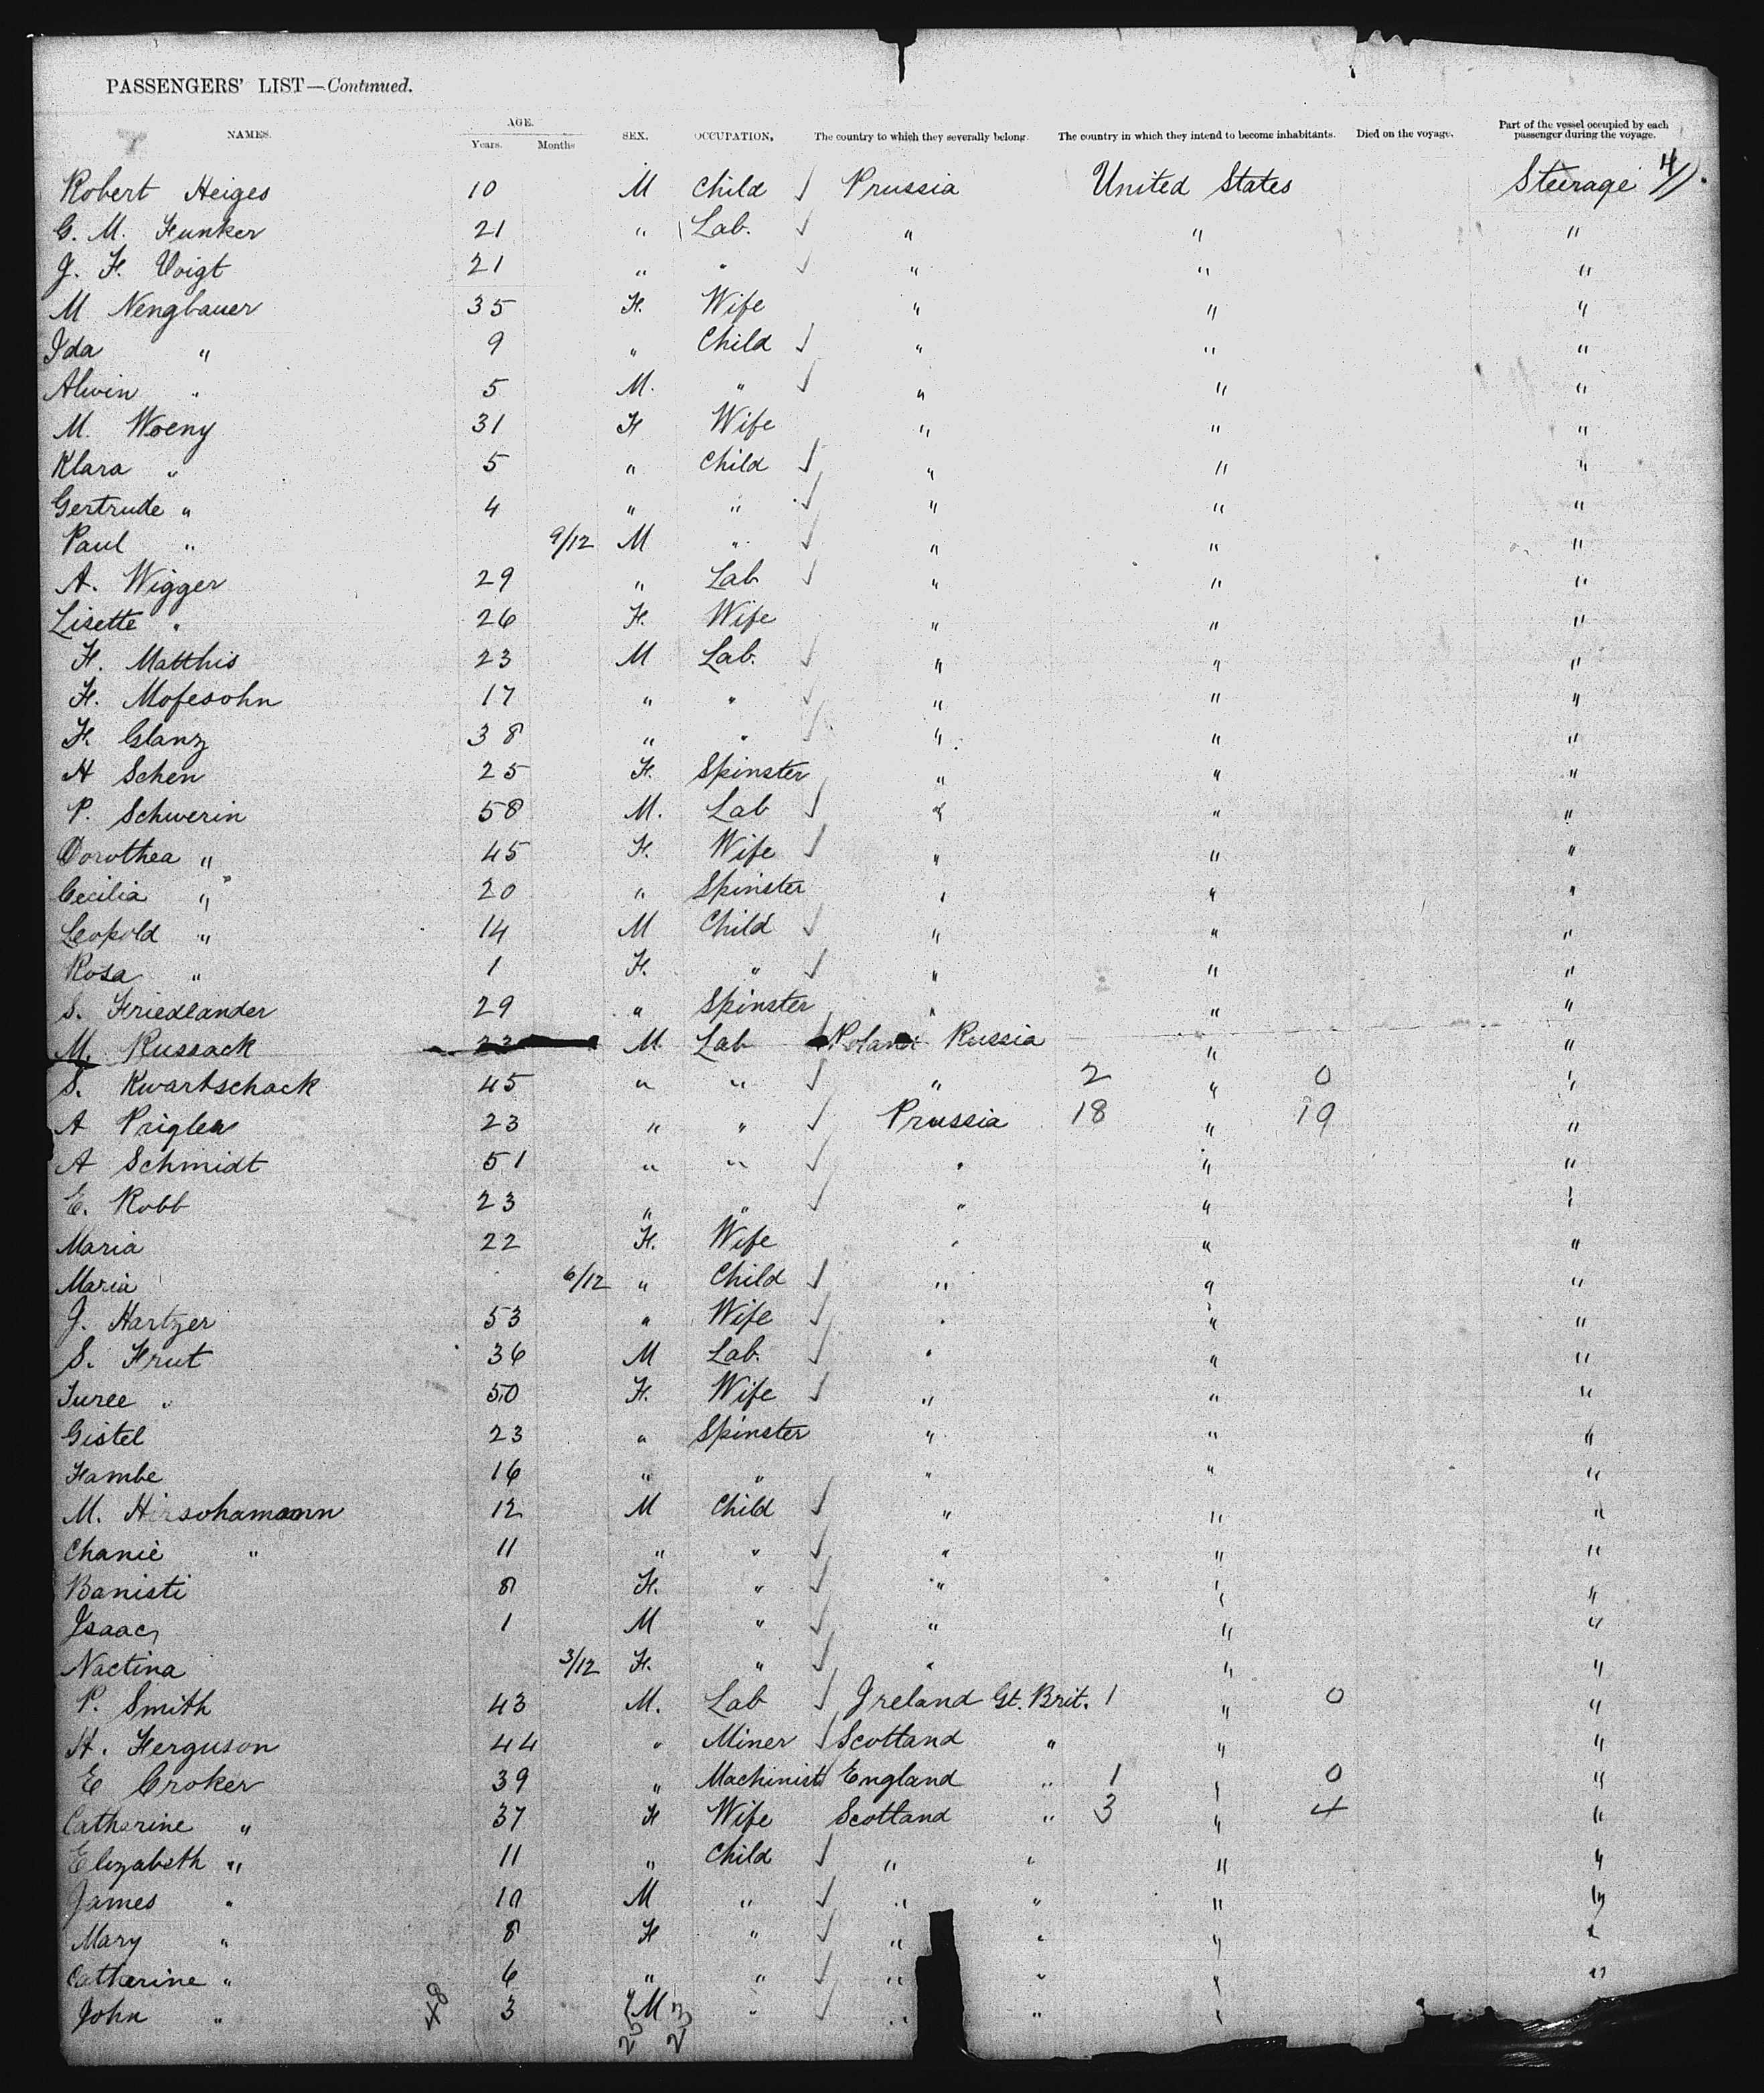 PASSENGERS' LIST—Continued.
NAMES. AGE. Years. Months SEX. OCCUPATION. The country to which they severally belong. The country in which they intend to become inhabitants. Died on the voyage. Part of the vessel occupied by each passenger during the voyage.
Robert Heiges 10 M Child Prussia United States Steerage 4
G. M. Funker 21 " Lab. " " "
J. F. Voigt 21 " " " " "
M Nengbauer 35 F. Wife " " "
Ida " 9 " Child " " "
Alwin " 5 M. " " " "
M. Woeny 31 F Wife " " "
Klara " 5 " Child " " "
Gertrude " 4 " " " " "
Paul " 9/12 M " " " "
A. Wigger 29 " Lab " " "
Lisette " 26 F. Wife " " "
F. Matthis 23 M Lab. " " "
F. Mofesohn 17 " " " " "
F. Glanz 38 " " " " "
H Schen 25 F. Spinster " " "
P. Schwerin 58 M. Lab " " "
Dorothea " 45 F. Wife " " "
Cecilia " 20 " Spinster " " "
Leopold " 14 M Child " " "
Rosa " 1 F. " " " "
S. Friedlander 29 " Spinster " " "
M. Russack M. Lab Poland Russia " "
S. Kwartschack 45 " " " 2 " 0 "
A Prigler 23 " " Prussia 18 " 19 "
A Schmidt 51 " " " " "
E. Robb 23 " " " " "
Maria 22 F. Wife " " "
Maria 6/12 " Child " " "
J. Hartzer 53 " Wife " " "
S. Frut 36 M Lab. " " "
Turee " 50 F. Wife " " "
Gistel 23 " Spinster " " "
Fambe 16 " " " " "
M. Hirsohamann 12 M Child " " "
Chanie " 11 " " " " "
Banisti 8 F. " " " "
Isaac 1 M " " " "
Nactina 3/12 F. " " " "
P. Smith 43 M. Lab Ireland Gt. Brit. 1 " 0 "
H. Ferguson 44 " Miner Scotland " " "
E Croker 39 " Machinist England " 1 " 0 "
Catherine " 37 F Wife Scotland " 3 " 4 "
Elizabeth " 11 " Child " " " "
James " 10 M " " " " "
Mary " 8 F " " " " "
Catherine " 6 " " " " " "
John " 3 M " " " "
48 25 23